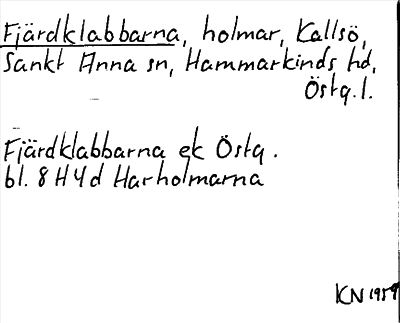 Fjärdklabbarna, holmar, Kallsö,
Sankt Anna sn, Hammarkinds hd,
Östg.l.
Fjärdklabbarna ek Östg.
bl. 8 H 4 d Harholmarna
KN 1959